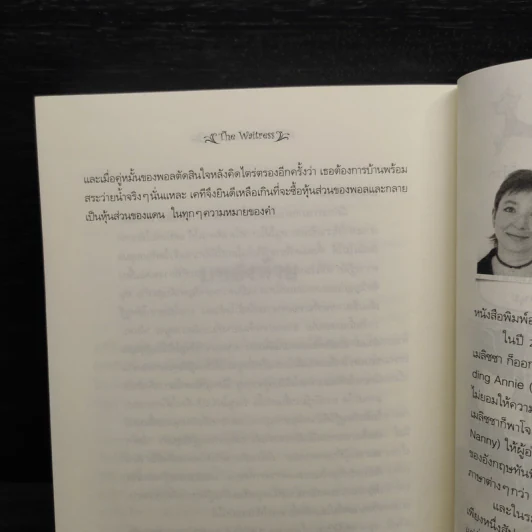 The Waitress
และเมื่อคู่หมั้นของพอลตัดสินใจหลังคิดไตร่ตรองอีกครั้งว่า เธอต้องการบ้านพร้อม
สระว่ายน้ำจริงๆนั่นแหละ เคทีจึงยินดีเหลือเกินที่จะซื้อหุ้นส่วนของพอลและกลาย
เป็นหุ้นส่วนของแดน ในทุกๆความหมายของคำ
หนังสือพิมพ์
ในปี
เมลิซซา ก็ออก
ding Annie (
ไม่ยอมให้ความ
เมลิซซาก็พาโจ
Nanny) ให้ผู้
ของอังกฤษทันที
ภาษาต่างๆกว่า
และใน